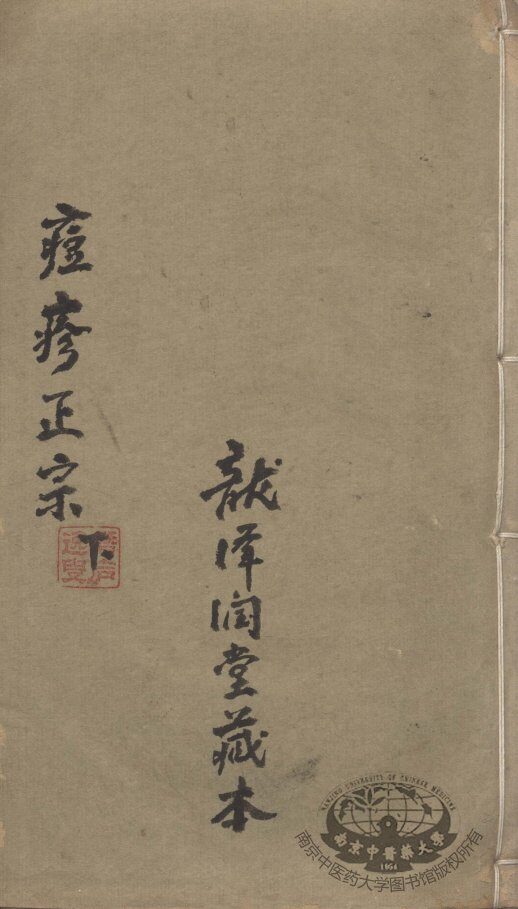 痘疹正宗
下
龍澤润堂藏本
NANJING UNIVERSITY OF CHINESE MEDICINE
南京中醫藥大學
1954
南京中医药大学图书馆版权所有